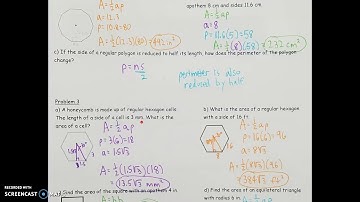 a = 12.3
P = 10.8 = 80
A = ½(12.3)(80) ≈ 492 in²
apothem 8 cm and sides 11.6 cm
A = ½ap
a = 8
P = 11.6(5) = 58
A = ½(8)(58) = 232 cm²
c) If the side of a regular polygon is reduced to half its length, how does the perimeter of the polygon
change?
P = ns/2
perimeter is also
reduced by half
Problem 3
a) A honeycomb is made up of regular hexagon cells.
The length of a side of a cell is 3 mm. What is the
area of a cell?
A = ½ap
P = 3(6) = 18
a = 1.5√3
A = ½(1.5√3)(18)
13.5√3 mm²
b) What is the area of a regular hexagon
with a side of 16 ft
A = ½ap
P = 16(6) = 96
a = 8√3
A = ½(8√3)(96)
= 384√3 ft²
Find the area of the square with an apothem 4 in
d) Find the area of an equilateral triangle
with radius 6 in
RECORDED WITH
SCREENCAST